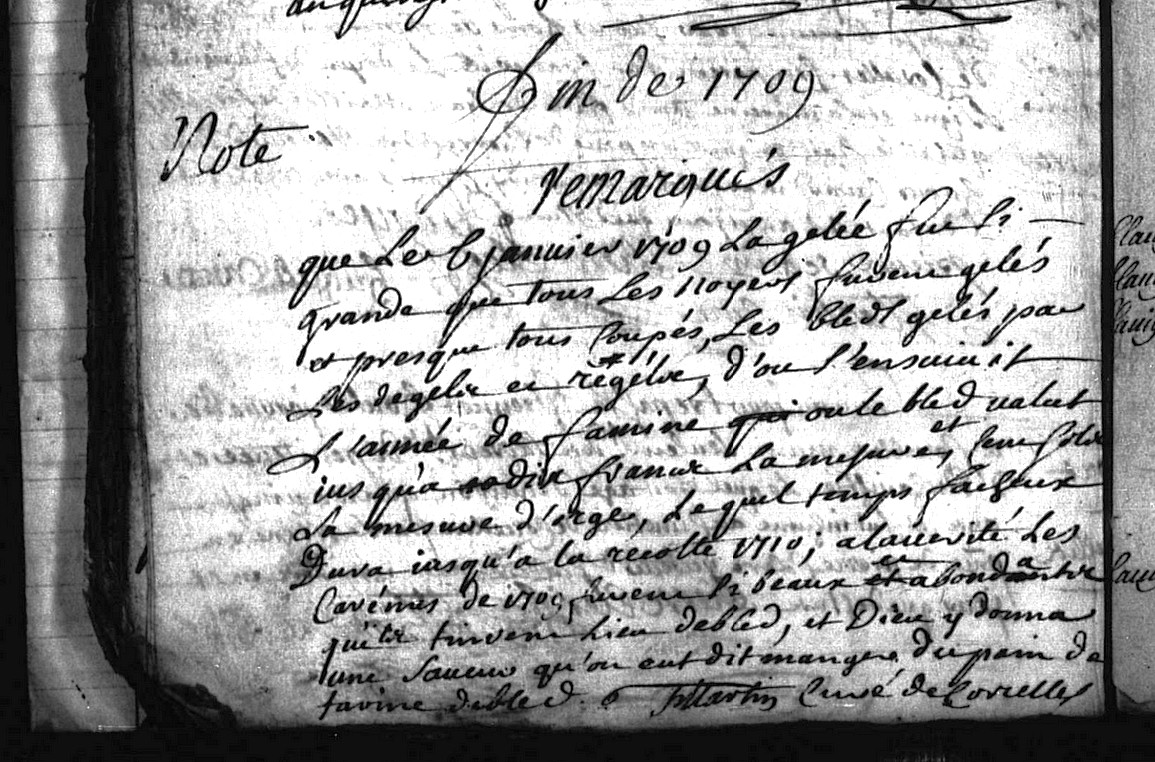 fin de 1709
Note
remarqués
que Le 6 janvier 1709 La gelée fut si
grande que tous Les noyers furent gelés
et presque tous coupés, Les bleds gelés par
Les degelés et regelés, d'ou s'ensuivit
L'année de famine ou le bled valut
jusqu'a dix francs La mesure, et cent sols
La mesure d'orge, Lequel temps facheux
Dura jusqu'a la recolte 1710; a la verité Les
Carémes de 1709 furent si beaux et abondants
qu'ils tinrent Lieu de bled, et Dieu y donna
une saveur qu'on eut dit manger du pain de
farine de bled. Martin Curé de Corcelles